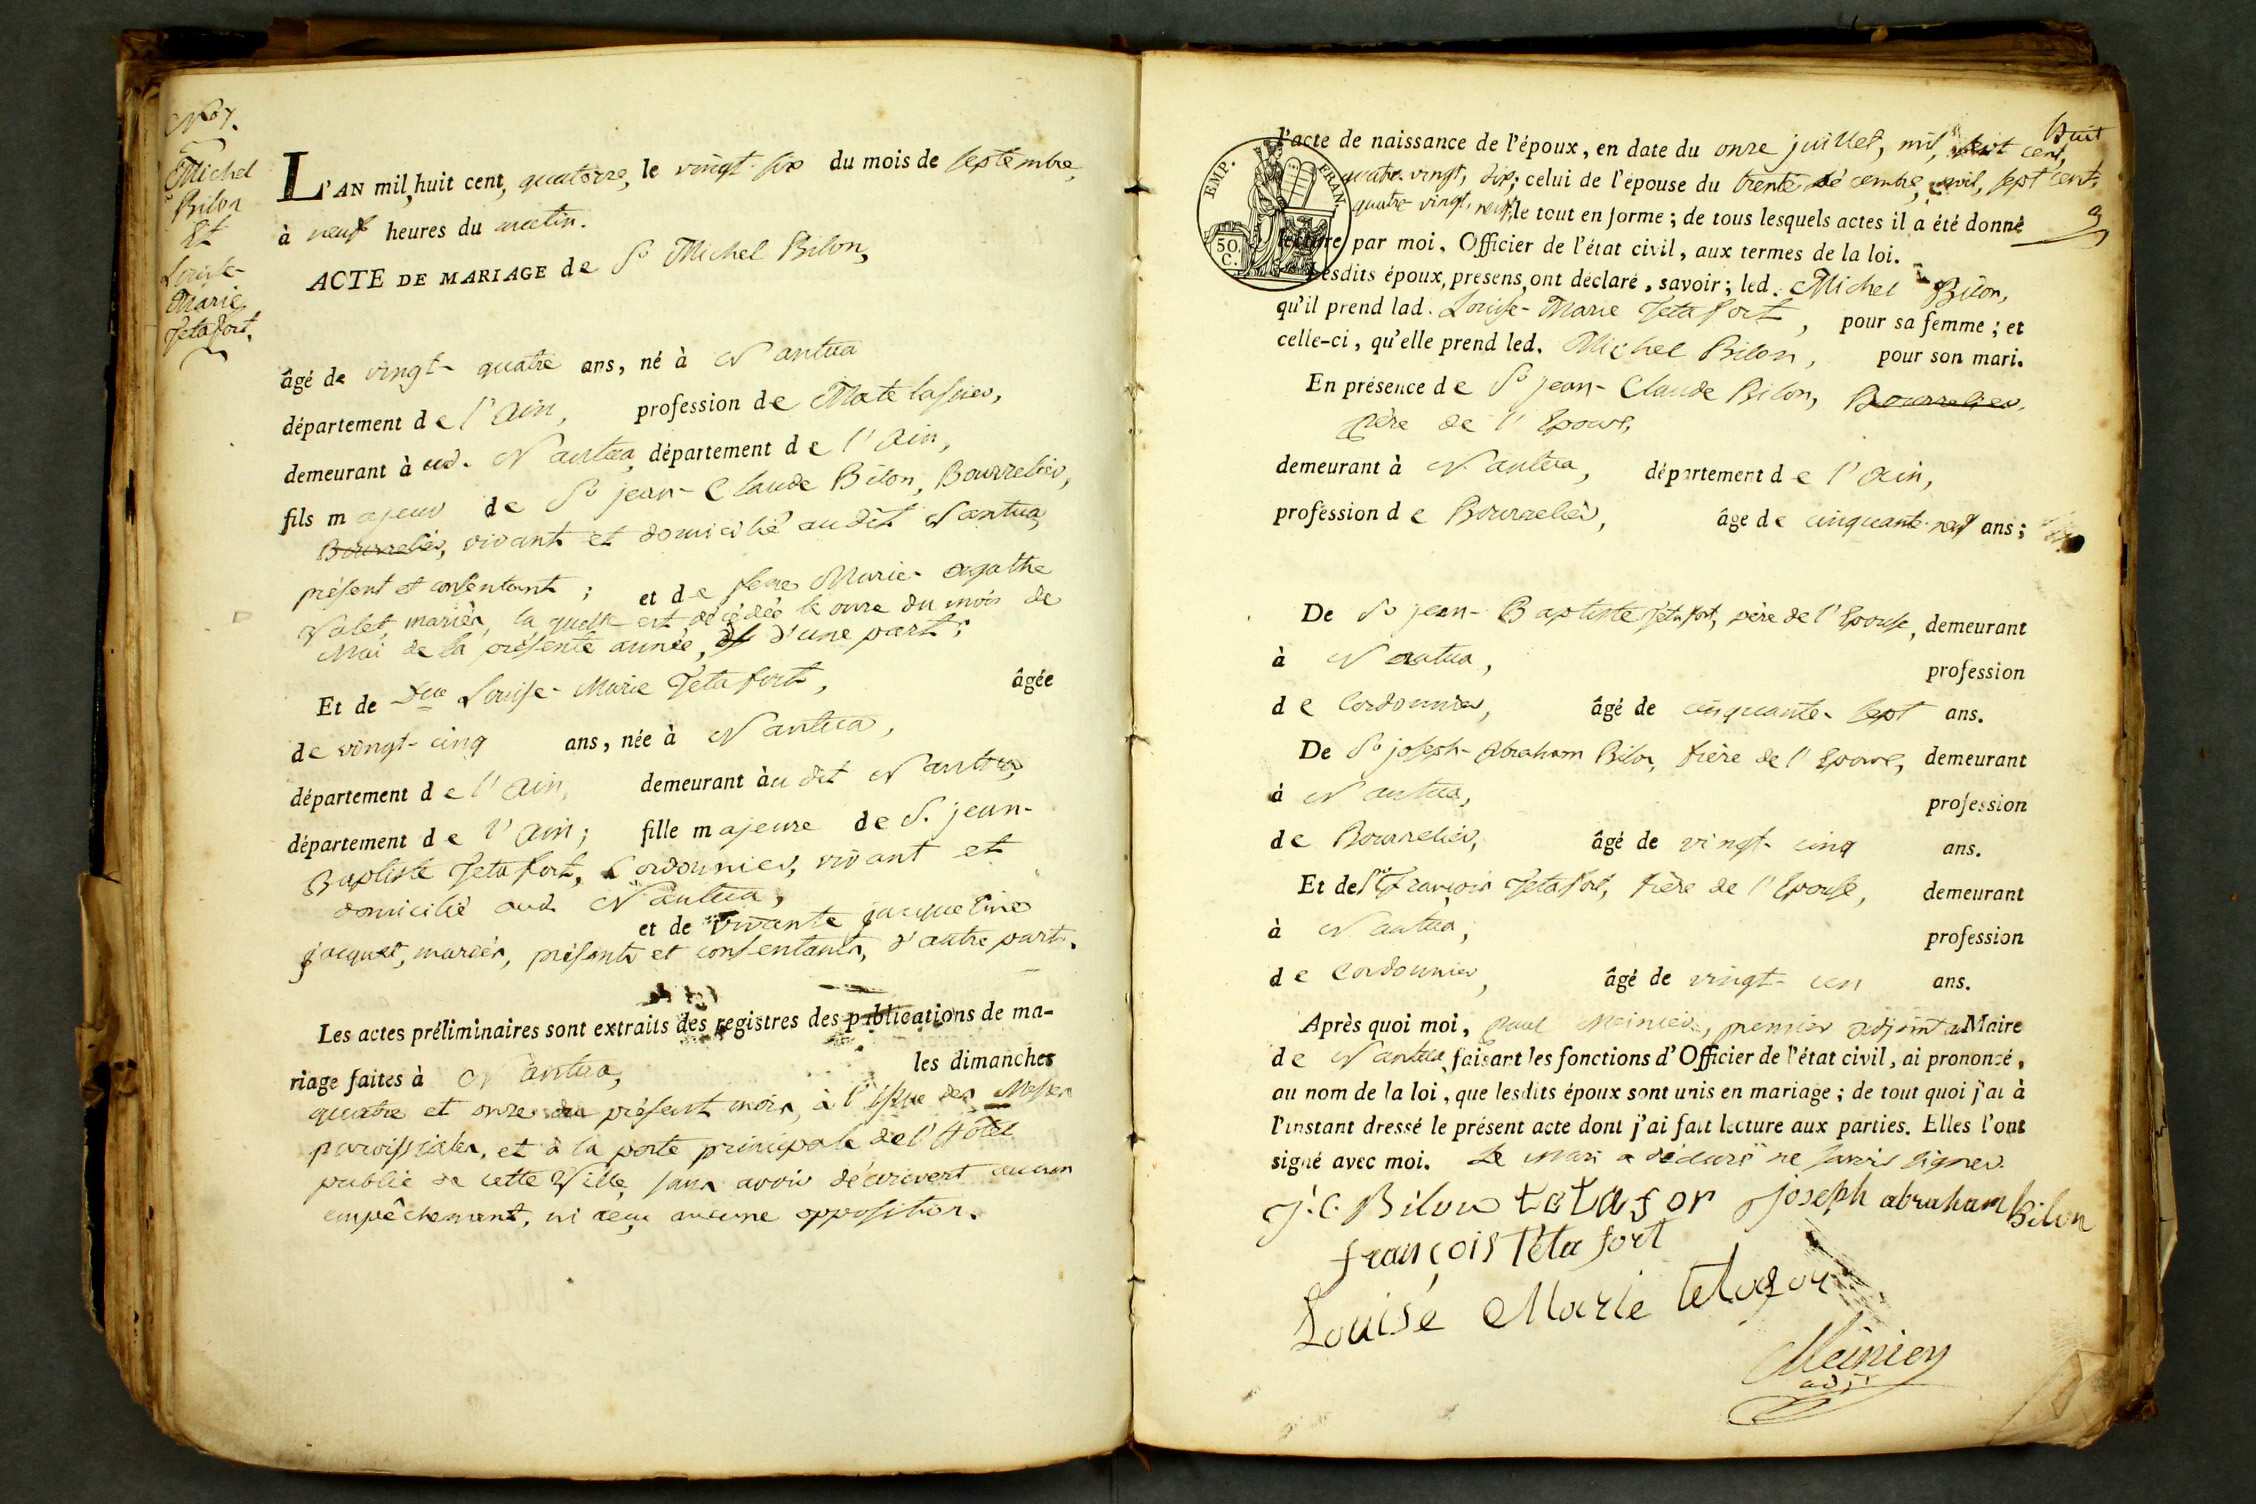 N° 7.
Michel
Bilon
Et
Louise-
Marie
Tetafort.
L'AN mil, huit cent, quatorze, le vingt-six du mois de septembre,
à neuf heures du matin.
ACTE DE MARIAGE de Sr Michel Bilon,
âgé de vingt-quatre ans, né à Nantua
département de l'Ain, profession de Matelassier,
demeurant à aud. Nantua, département de l'Ain,
fils majeur de Sr jean-Claude Bilon, Bourrelier,
Bourrelier, vivant et domicilié audit Nantua,
présent et consentant; et de feue Marie-agathe
Valet, mariés, la quelle est décédée le onze du mois de
Mai de la présente année, d'une part;
Et de Dlle Louise-Marie Tetafort, âgée
de vingt-cinq ans, née à Nantua,
département de l'Ain, demeurant àu dit Nantua,
département de l'Ain; fille majeure de S. jean-
Baptiste Tetafort, Cordonnier, vivant et
domicilié aud. Nantua,
et de vivante jacqueline
jacquet, mariés, présents et consentants, d'autre part.
Les actes préliminaires sont extraits des registres des publications de ma-
riage faites à Nantua, les dimanches
quatre et onze du présent mois, à l'issue des Messes
paroissiales, et à la porte principale de l'Hôtel
public de cette Ville, sans avoir découvert aucun
empêchement, ni reçu aucune opposition.
huit
l'acte de naissance de l'époux, en date du onze juillet, mil, sept cent,
quatre-vingt, dix; celui de l'épouse du trente décembre, mil, sept cent,
quatre-vingt, neuf, le tout en forme; de tous lesquels actes il a été donné
lecture par moi, Officier de l'état civil, aux termes de la loi.
EMP. FRAN.
50.
C.
Lesdits époux, présens, ont déclaré, savoir; led. Michel Bilon,
qu'il prend lad. Louise-Marie Tetafort, pour sa femme; et
celle-ci, qu'elle prend led. Michel Bilon, pour son mari.
En présence de Sr jean-Claude Bilon, Bourrelier,
père de l'Epoux,
demeurant à Nantua, département de l'Ain,
profession de Bourrelier, âge de cinquante-neuf ans;
De Sr jean-Baptiste Tetafort, père de l'Epouse, demeurant
à Nantua, profession
de Cordonnier, âgé de cinquante-sept ans.
De Sr joseph-Abraham Bilon, frère de l'Epoux, demeurant
à Nantua, profession
de Bourrelier, âgé de vingt-cinq ans.
Et de Sr François Tetafort, frère de l'Epouse, demeurant
à Nantua, profession
de Cordonnier, âgé de vingt-un ans.
Après quoi moi, Paul Meinier, premier adjoint au Maire
de Nantua, faisant les fonctions d'Officier de l'état civil, ai prononcé,
au nom de la loi, que lesdits époux sont unis en mariage; de tout quoi j'ai à
l'instant dressé le présent acte dont j'ai fait lecture aux parties. Elles l'ont
signé avec moi. Le mari a déclaré ne savoir signer.
J. C. Bilon tetafor joseph abraham Bilon
françois Tetafort
Louise Marie tetafor
Meinier
adjt